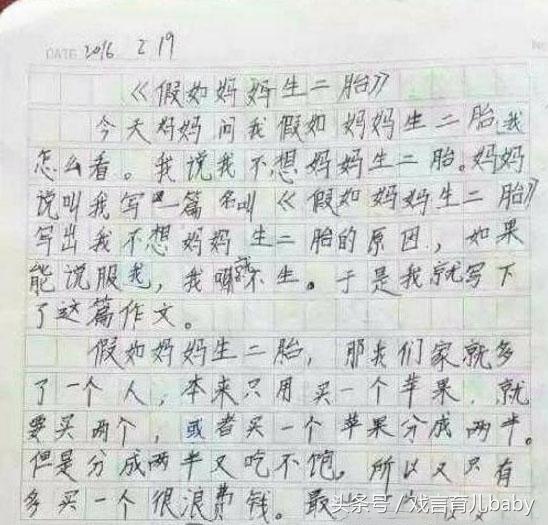 DATE 2016 2 19
《假如妈妈生二胎》
今天妈妈问我假如妈妈生二胎,我
怎么看。我说我不想妈妈生二胎。妈妈
说叫我写一篇名叫《假如妈妈生二胎》
写出我不想妈妈生二胎的原因,如果
能说服我,我就不生。于是我就写下
了这篇作文。
假如妈妈生二胎,那我们家就多
了一个人,本来只用买一个苹果,就
要买两个,或者买一个苹果分成两半。
但是分成两半又吃不饱。所以又只有
多买一个很浪费钱。最
头条号/戏言育儿baby